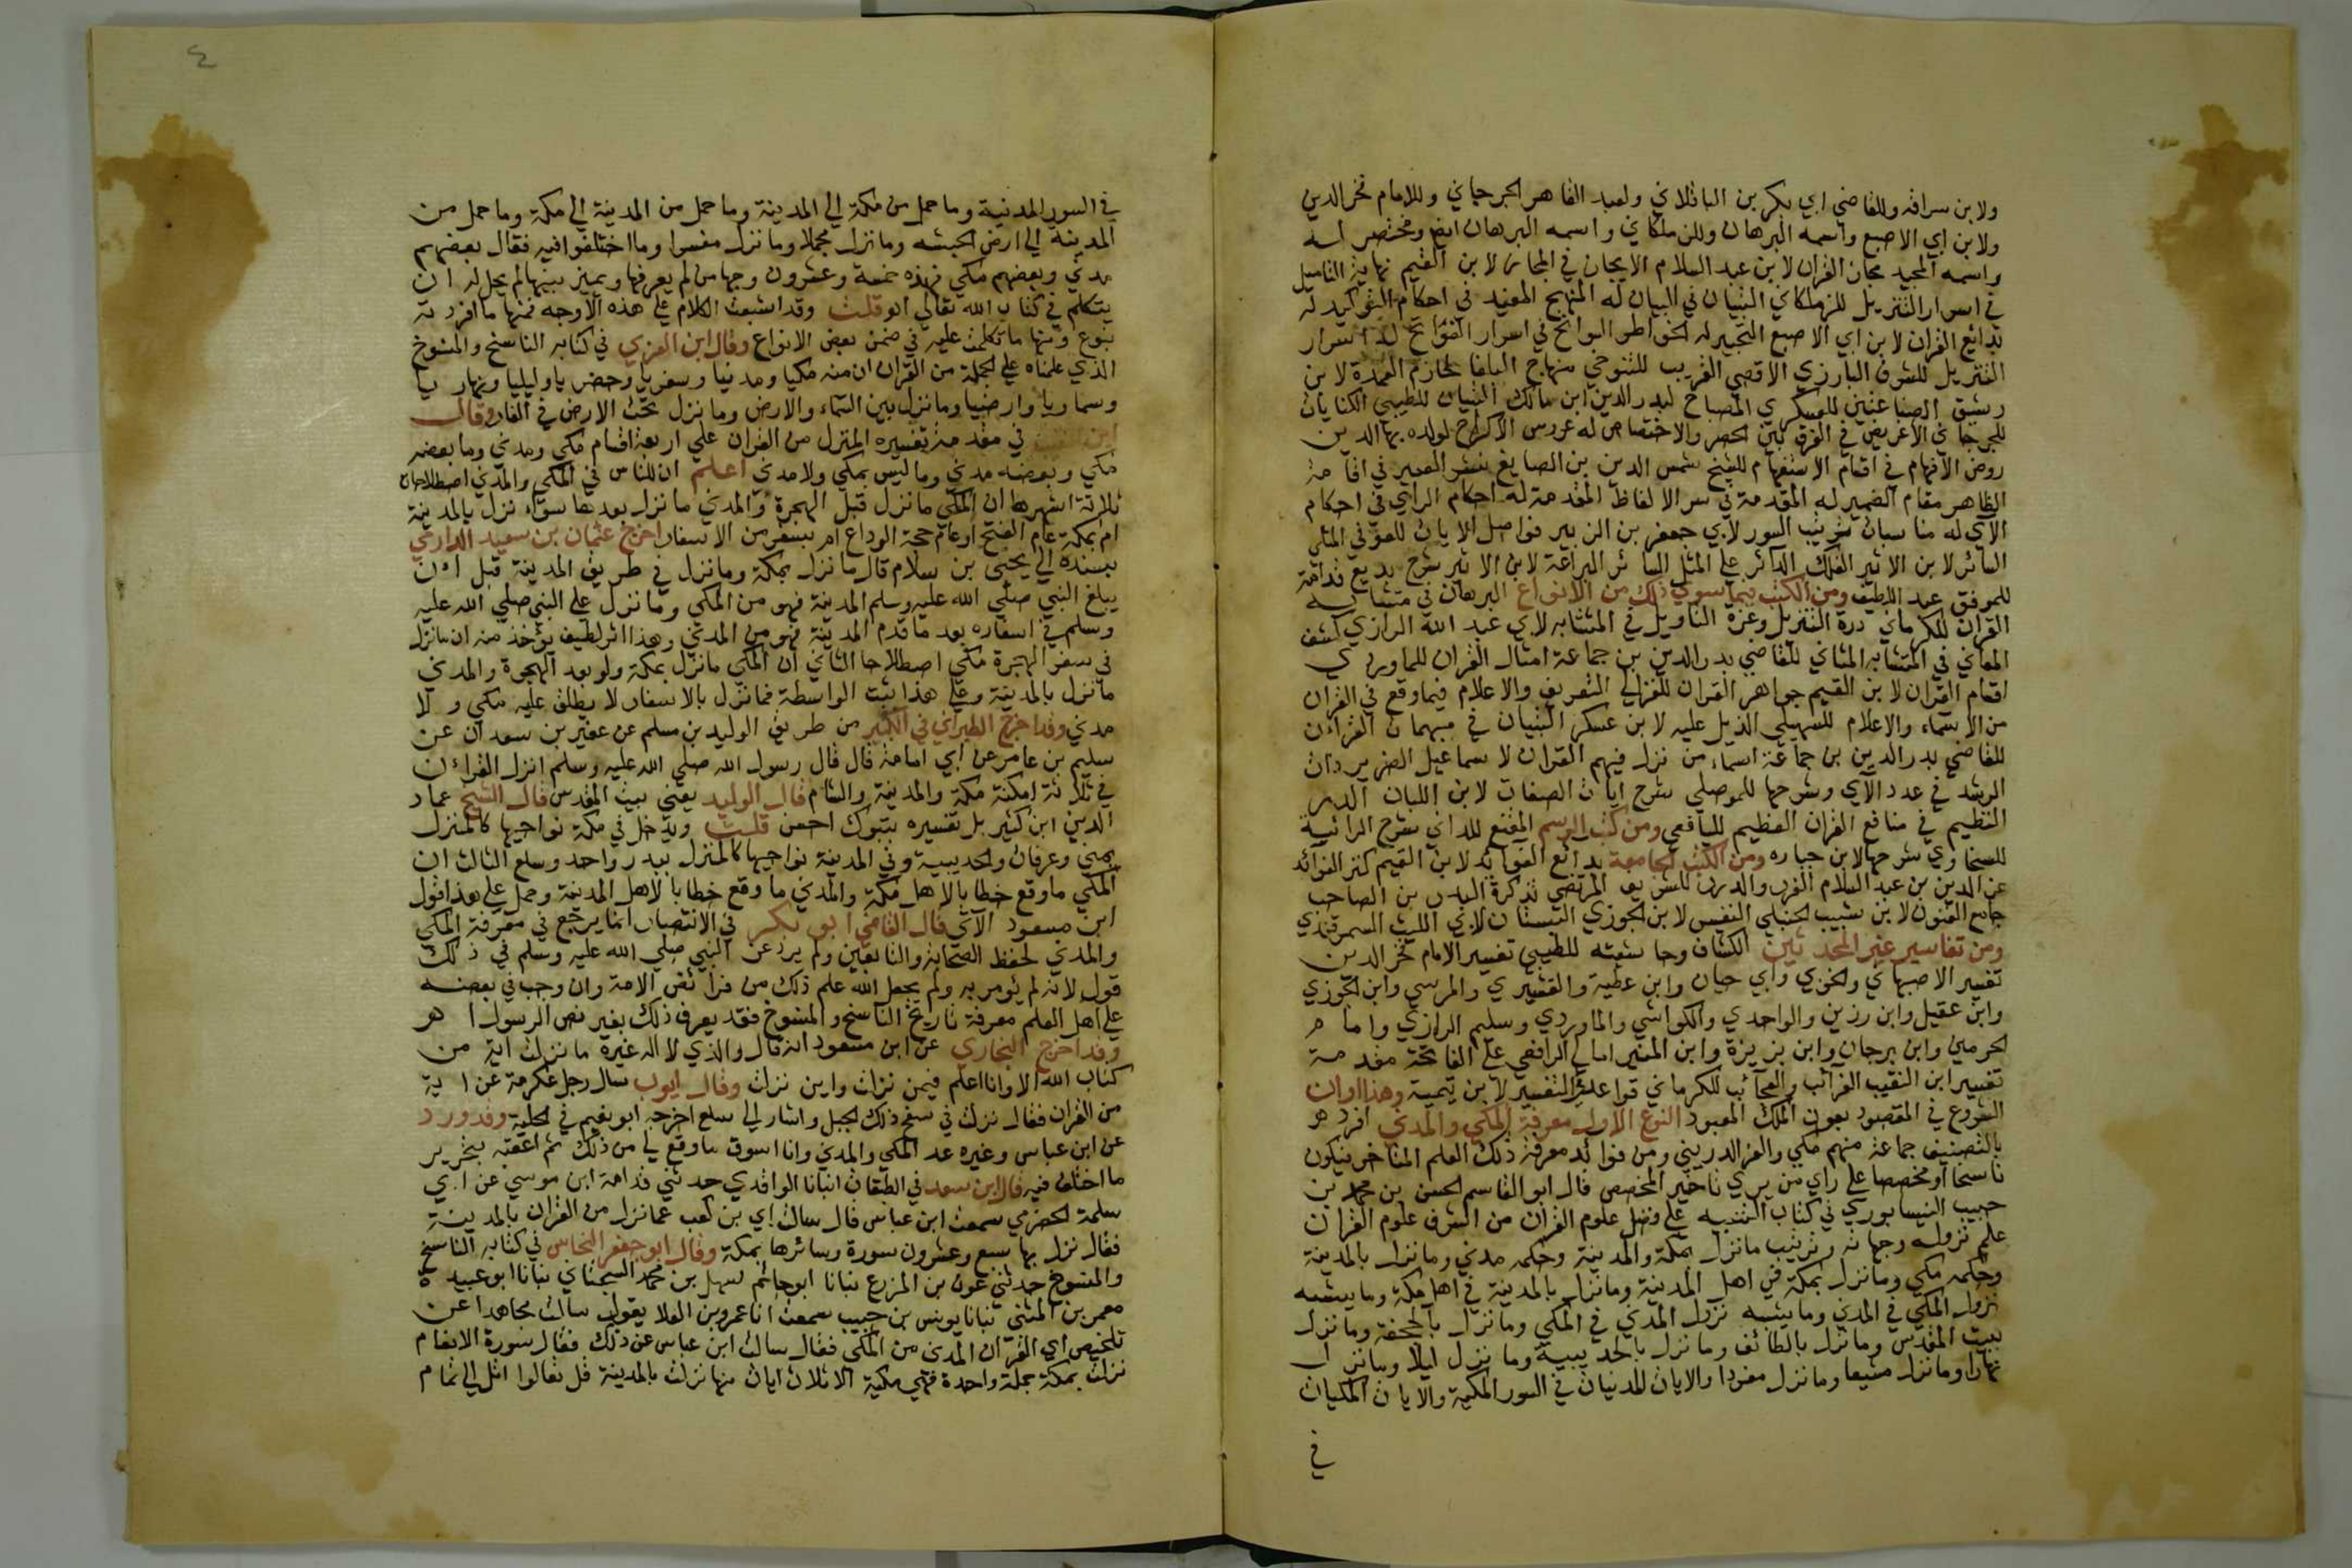 ولابن سراقه وللقاضي ابي بكر بن الباقلاني ولعبد القاهر الجرجاني وللامام فخر الدين
ولابن ابي الاصبع واسمه البرهان وللزملكاني واسمه البرهان ايضا ومختصر له
واسمه المجيد مجاز القران لابن عبد السلام الايجاز في المجاز لابن القيم نهاية التاميل
في اسرار التنزيل للزملكاني التبيان في البيان له المنهج المفيد في احكام التوكيد له
بدائع القران لابن ابي الاصبع التحبير له الخواطر السوانح في اسرار الفواتح له اسرار
التنزيل للشرف البارزي الاقصى القريب للتنوخي منهاج البلغا لحازم العمدة لابن
رشيق الصناعتين للعسكري المصباح لبدر الدين ابن مالك التبيان للطيبي الكنايات
للجرجاني الاغريض في الفرق بين الحصر والاختصاص له عروس الافراح لولده بها الدين
روض الافهام في اقسام الاستفهام للشيخ شمس الدين بن الصايغ نشر العبير في اقامة
الظاهر مقام الضمير له المقدمة في سر الالفاظ المقدمة له احكام الراي في احكام
الآي له مناسبات ترتيب السور لابي جعفر بن الزبير فواصل الايات للطوفي المثل
السائر لابن الاثير الفلك الدائر على المثل السائر البراعة لابن الاثير شرح بديع قدامة
للموفق عبد اللطيف ومن الكتب فيما سوي ذلك من الانواع البرهان في متشابه
القران للكرماني درة التنزيل وغرة التاويل في المتشابه لابي عبد الله الرازي كشف
المعاني في المتشابه المثاني للقاضي بدر الدين بن جماعة امثال القران للماوردي
اقسام القران لابن القيم جواهر القران للغزالي التعريف والاعلام فيما وقع في القران
من الاسماء والاعلام للسهيلي الذيل عليه لابن عسكر التبيان في مبهمات القراءن
للقاضي بدر الدين بن جماعة اسماء من نزل فيهم القران لاسماعيل الضرير ذات
الرشد في عدد الآي وشرحها للموصلي شرح ايات الصفات لابن اللبان الدر
النظيم في منافع القران العظيم لليافعي ومن كتب الرسم المقنع للداني شرح الرائية
للسخاوي شرحها لابن جباره ومن الكتب الجامعة بدائع الفوائد لابن القيم كنز الفوائد
عز الدين بن عبد السلام الغرر والدرر للشريف المرتضي تذكرة البدر بن الصاحب
جامع الفنون لابن شبيب الحنبلي النفيس لابن الجوزي البستان لابي الليث السمرقندي
ومن تفاسير غير المحدثين الكشاف وحاشيته للطيبي تفسير الامام فخر الدين
تفسير الاصبهاني والحوفي وابي حيان وابن عطية والقشيري والمرسي وابن الجوزي
وابن عقيل وابن رزين والواحدي والكواشي والماوردي وسليم الرازي وامام
الحرمين وابن برجان وابن بزيزة وابن المنير امالي الرافعي على الفاتحة مقدمة
تفسير ابن النقيب الغرائب والعجائب للكرماني قواعد في التفسير لابن تيمية وهذا اوان
الشروع في المقصود بعون الملك المعبود النوع الاول معرفة المكي والمدني افرده
بالتصنيف جماعة منهم مكي والعز الدريني ومن فوائد معرفة ذلك العلم المتاخر فيكون
ناسخا او مخصصا على راي من يري تاخير المخصص قال ابو القاسم الحسن بن محمد بن
حبيب النيسابوري في كتاب التنبيه على فضل علوم القران من اشرف علوم القران
علم نزوله وجهاته وترتيب مانزل بمكة والمدينة وحكمه مدني ومانزل بالمدينة
وحكمه مكي ومانزل بمكة في اهل المدينة ومانزل بالمدينة في اهل مكة وما يشبه
نزول المكي في المدني ومايشبه نزول المدني في المكي ومانزل بالجحفة ومانزل
ببيت المقدس ومانزل بالطائف ومانزل بالحديبية وما نزل ليلا ومانزل
نهارا ومانزل مشيعا ومانزل مفردا والايات المدنيات في السور المكية والايات المكيات
في
٤
في السور المدنية وما حمل من مكة الي المدينة وما حمل من المدينة الي مكة وما حمل من
المدينة الي ارض الحبشه ومانزل مجملا ومانزل مفسرا وما اختلفوا فيه فقال بعضهم
مدني وبعضهم مكي فهذه خمسة وعشرون وجها من لم يعرفها ويميز بينها لم يحل له ان
يتكلم في كتاب الله تعالي انتهى قلت وقد اشبعت الكلام على هذه الاوجه فمنها ما افردته
بنوع ومنها ما تكلمت عليه في ضمن بعض الانواع وقال ابن العربي في كتابه الناسخ والمنسوخ
الذي علمناه على الجملة من القران ان منه مكيا ومدنيا وسفريا وحضريا وليليا ونهاريا
وسماويا وارضيا ومانزل بين السماء والارض ومانزل تحت الارض في الغار وقال
ابن النقيب في مقدمة تفسيره المنزل من القران على اربعة اقسام مكي ومدني وما بعضه
مكي وبعضه مدني وما ليس بمكي ولا مدني اعلم ان للناس في المكي والمدني اصطلاحات
ثلاثة اشهرها ان المكي مانزل قبل الهجرة والمدني مانزل بعدها سواء نزل بالمدينة
ام بمكة عام الفتح او عام حجة الوداع ام بسفر من الاسفار اخرج عثمان بن سعيد الدارمي
بسنده الي يحيى بن سلام قال مانزل بمكة ومانزل في طريق المدينة قبل ان
يبلغ النبي صلى الله عليه وسلم المدينة فهو من المكي ومانزل على النبي صلى الله عليه
وسلم في اسفاره بعد ما قدم المدينة فهو من المدني وهذا اثر لطيف يؤخذ منه ان مانزل
في سفر الهجرة مكي اصطلاحا الثاني ان المكي مانزل بمكة ولو بعد الهجرة والمدني
مانزل بالمدينة وعلى هذا يثبت الواسطة فمانزل بالاسفار لا يطلق عليه مكي ولا
مدني وقد اخرج الطبراني في الكبير من طريق الوليد بن مسلم عن عفير بن معدان عن
سليم بن عامر عن ابي امامة قال قال رسول الله صلى الله عليه وسلم انزل القراءن
في ثلاثة امكنة مكة والمدينة والشام قال الوليد يعني بيت المقدس قال الشيخ عماد
الدين ابن كثير بل تفسيره بتبوك احسن قلت ويدخل في مكة نواحيها كالمنزل
بمني وعرفات والحديبية وفي المدينة نواحيها كالمنزل ببدر واحد وسلع الثالث ان
المكي ماوقع خطابا لاهل مكة والمدني ماوقع خطابا لاهل المدينة وحمل على هذا قول
ابن مسعود الآتي قال القاضي ابو بكر في الانتصار انما يرجع في معرفة المكي
والمدني لحفظ الصحابة والتابعين ولم يرد عن النبي صلى الله عليه وسلم في ذلك
قول لانه لم يؤمر به ولم يجعل الله علم ذلك من فرائض الامة وان وجب في بعضه
على اهل العلم معرفة تاريخ الناسخ والمنسوخ فقد يعرف ذلك بغير نص الرسول اهـ
وقد اخرج البخاري عن ابن مسعود انه قال والذي لا اله غيره مانزلت اية من
كتاب الله الا وانا اعلم فيمن نزلت واين نزلت وقال ايوب سال رجل عكرمة عن اية
من القران فقال نزلت في سفح ذلك الجبل واشار الي سلع اخرجه ابو نعيم في الحلية وقد ورد
عن ابن عباس وغيره عد المكي والمدني وانا اسوق ماوقع لي من ذلك ثم اعقبه بتحرير
ما اختلف فيه قال ابن سعد في الطبقات انبانا الواقدي حدثني قدامة ابن موسي عن ابي
سلمة الحضرمي سمعت ابن عباس قال سالت ابي بن كعب عما نزل من القران بالمدينة
فقال نزل بها سبع وعشرون سورة وسائرها بمكة وقال ابو جعفر النحاس في كتابه الناسخ
والمنسوخ حدثني عون بن المزرع نبانا ابو حاتم سهل بن محمد السجستاني نبانا ابو عبيدة
معمر بن المثني نبانا يونس بن حبيب سمعت انا عمرو بن العلا يقول سالت مجاهدا عن
تلخيص اي القران المدني من المكي فقال سالت ابن عباس عن ذلك فقال سورة الانعام
نزلت بمكة جملة واحدة فهي مكية الا ثلاث ايات منها نزلت بالمدينة قل تعالوا اتل الي تمام